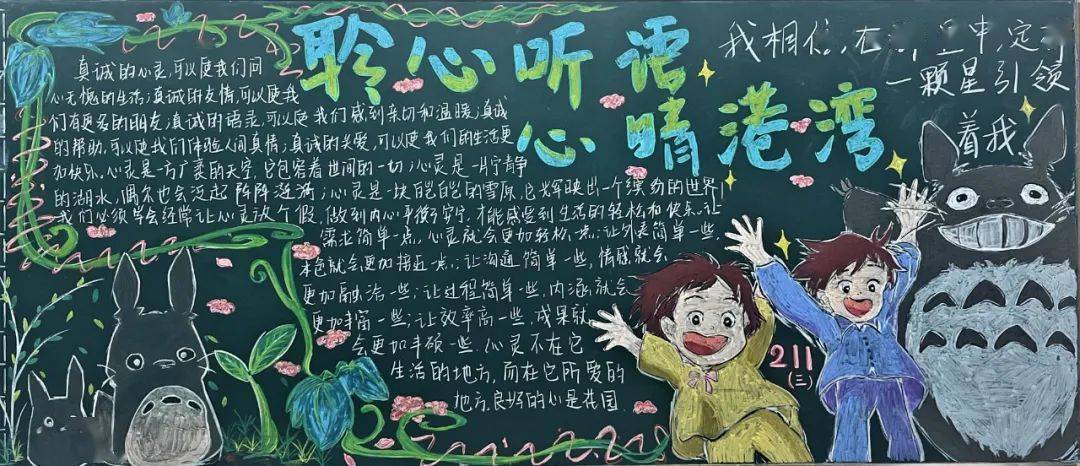 聆心听语
心晴港湾
我相信,在 空中,定
一颗星引领
着我
真诚的心灵,可以使我们问
心无愧的生活;真诚的友情,可以使我
们有更多的朋友;真诚的语录,可以使我们感到亲切和温暖;真诚
的帮助,可以使我们体验人间真情;真诚的关爱,可以使我们的生活更
加快乐,心灵是一方广袤的天空,它包容着世间的一切;心灵是一片宁静
的湖水,偶尔也会泛起阵阵涟漪;心灵是一块皑皑的雪原,它辉映出一个缤纷的世界!
我们必须学会经常让心灵放个假,做到内心平衡与安宁,才能感受到生活的轻松和快乐。让
需求简单一点,心灵就会更加轻松一点;让外表简单一些,
本色就会更加接近一点;让沟通简单一些,情感就会
更加融洽一些;让过程简单一些,内涵就会
更加丰富一些;让效率高一些,成果就
会更加丰硕一些.心灵不在它
生活的地方,而在它所爱的
地方,良好的心是花园
211
(三)